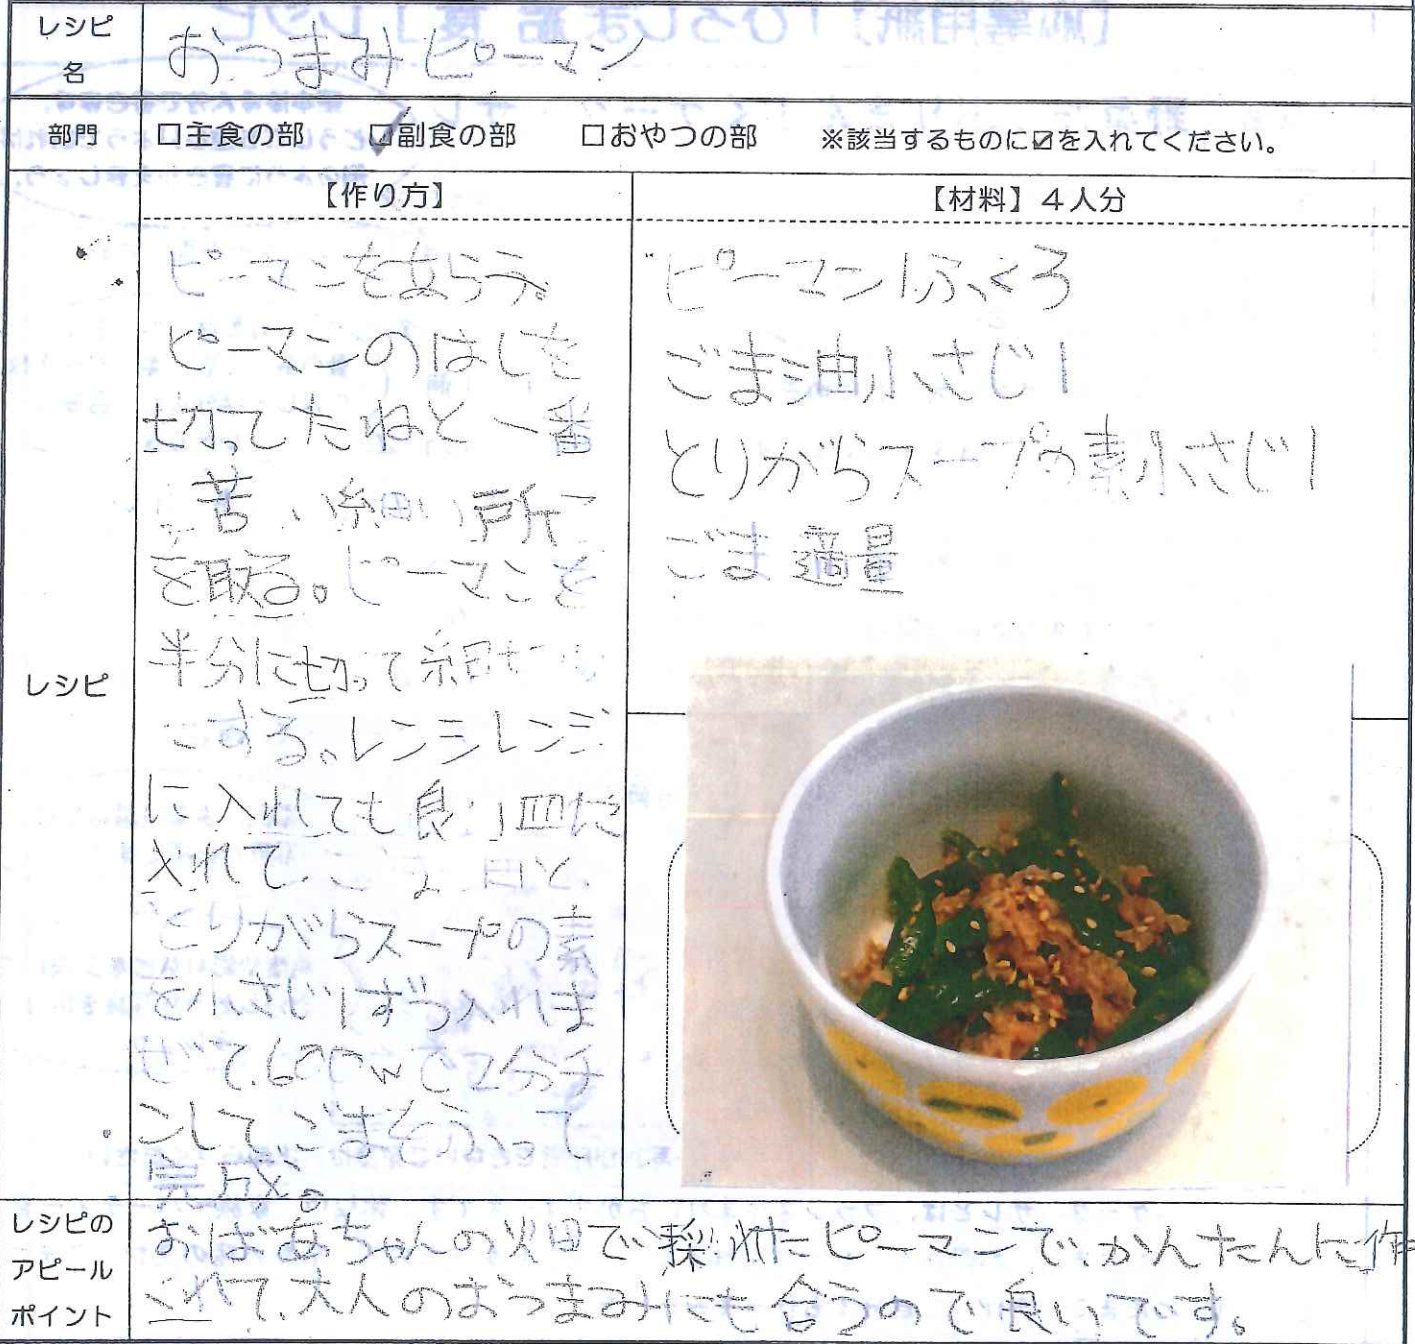 レシピ名
おつまみピーマン
部門
□主食の部 ☑副食の部 □おやつの部 ※該当するものに☑を入れてください。
レシピ
【作り方】
ピーマンをあらう。
ピーマンのはしを
切ってたねと一番
苦い細い所
を取る。ピーマンを
半分に切って細切り
にする。レンジレンジ
に入れても良い皿に
入れて、ごま油と、
とりがらスープの素
を小さじ1ずつ入れま
ぜて、600wで2分チ
ンしてごまをふって
完成。
【材料】4人分
ピーマン1ふくろ
ごま油小さじ1
とりがらスープの素小さじ1
ごま適量
レシピの
アピール
ポイント
おばあちゃんの火田で採れたピーマンで、かんたんに作
れて、大人のおつまみにも合うので良いです。